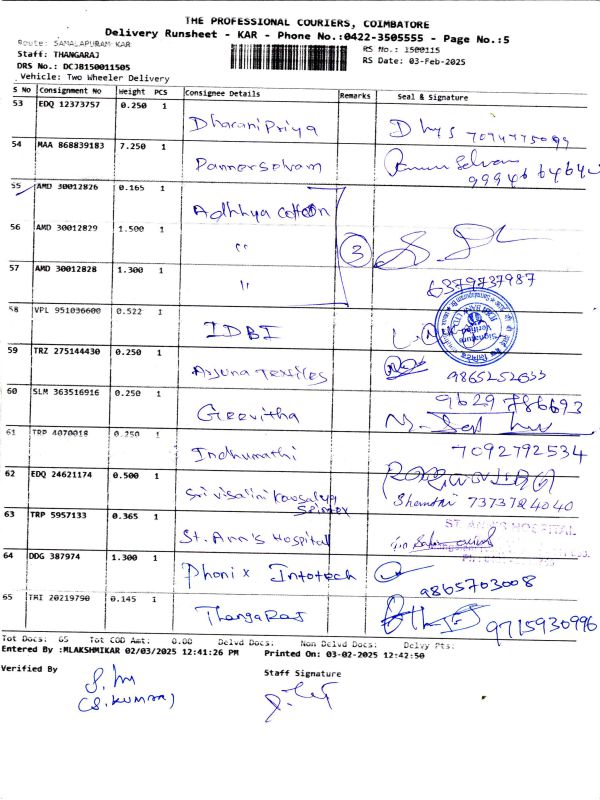 THE PROFESSIONAL COURIERS, COIMBATORE
Delivery Runsheet - KAR - Phone No.:0422-3505555 - Page No.:5
Route: SAMALAPURAM-KAR
Staff: THANGARAJ
DRS No.: DCJB150011505
Vehicle: Two Wheeler Delivery
RS No.: 1500115
RS Date: 03-Feb-2025
S No Consignment No Weight PCS Consignee Details Remarks Seal & Signature
53 EDQ 12373757 0.250 1
DharaniPriya
54 MAA 868839183 7.250 1
Pannerselvam
55 AMD 30012826 0.165 1
Adhhya cotton
56 AMD 30012829 1.500 1
" 3
57 AMD 30012828 1.300 1
" 6379737987
58 VPL 951096600 0.522 1
IDBI
59 TRZ 275144430 0.250 1
Arjuna textiles 9865252633
60 SLM 363516916 0.250 1
Geevitha 9629786693
61 TRP 4070018 0.250 1
Indhumathi 7092792534
62 EDQ 24621174 0.500 1
Sri visalini Kousalya
Spintex Shanthi 7373724040
63 TRP 5957133 0.365 1
St. Ann's Hospital ST. ANN'S HOSPITAL
64 DDG 387974 1.300 1
Phonix Infotech 9865703008
65 TRI 20219790 0.145 1
ThangaRaj 9715930996
Tot Docs: 65 Tot COD Amt: 0.00 Delvd Docs: Non Delvd Docs: Delvy Pts:
Entered By :MLAKSHMIKAR 02/03/2025 12:41:26 PM Printed On: 03-02-2025 12:42:50
Verified By Staff Signature
(S.KUMAR)